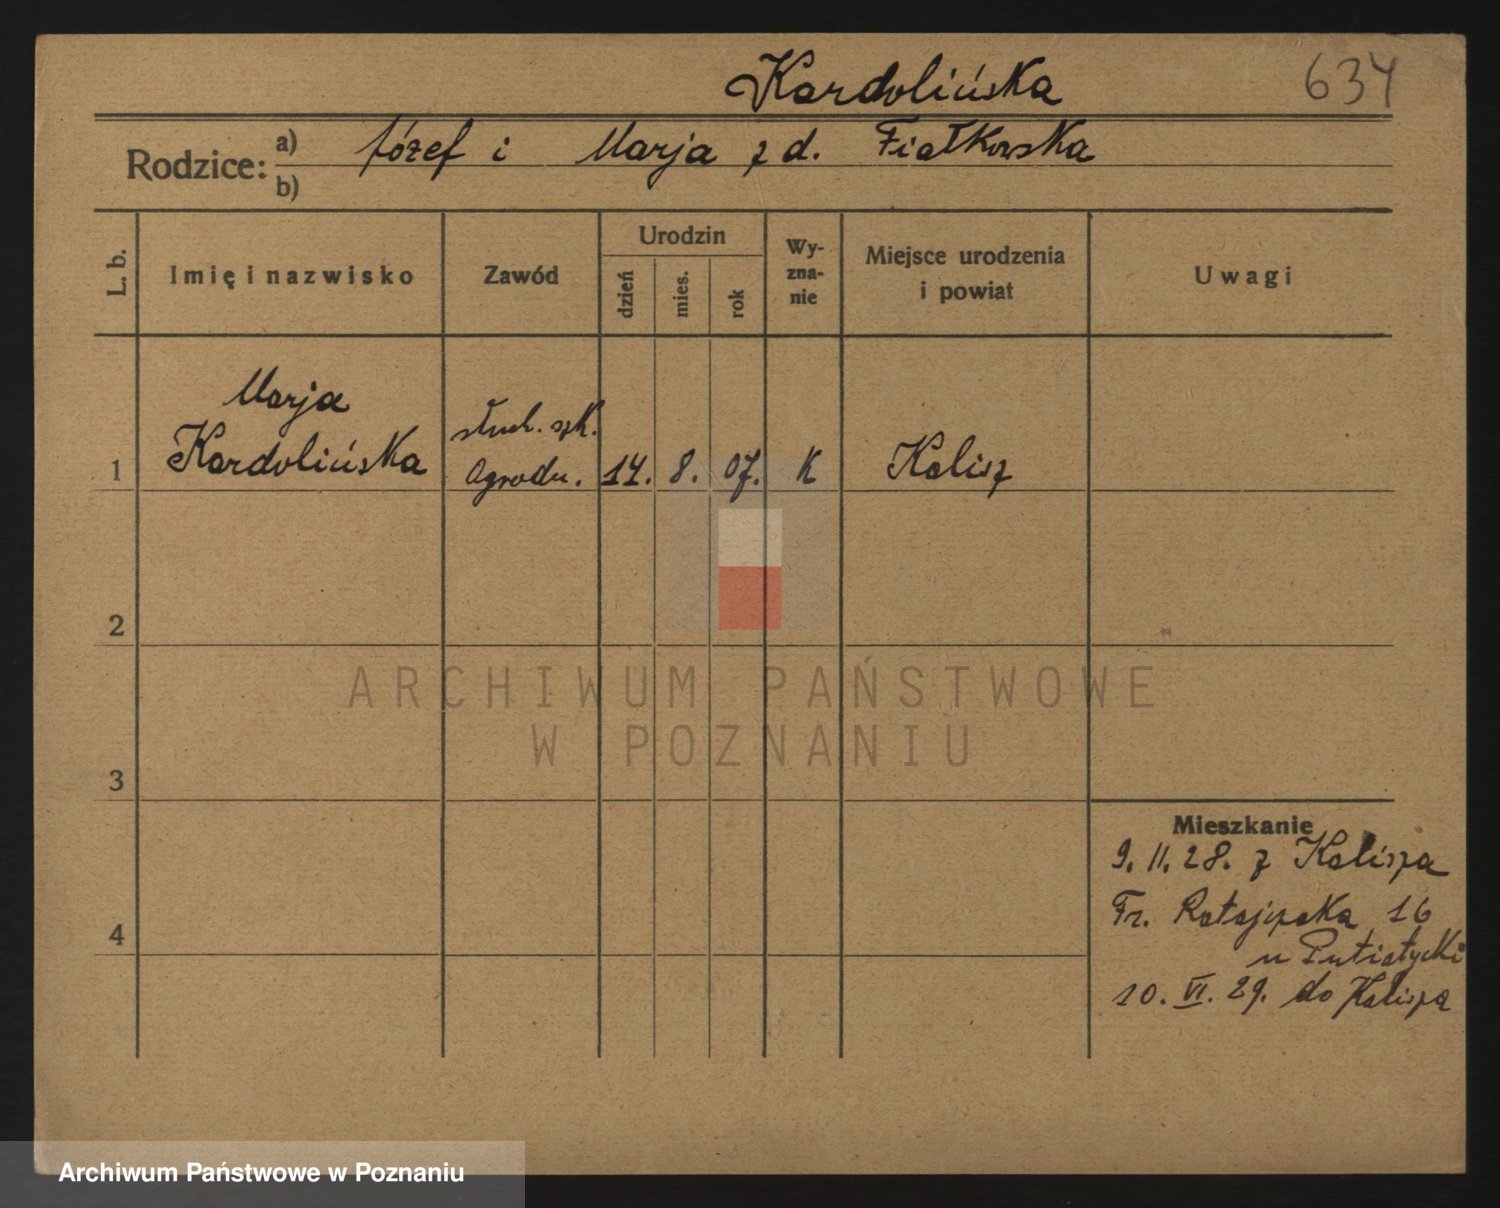 Kardolińska 634
Rodzice: a) Józef i Marja z d. Fiałkowska
b)
L. b.
Imię i nazwisko
Zawód
Urodzin
dzień
mies.
rok
Wy-
zna-
nie
Miejsce urodzenia
i powiat
Uwagi
Marja
Kardolińska
słuch. szk.
Ogrodn.
1
14. 8. 07. K Kalisz
2
3
4
Mieszkanie
9. II. 28. z Kalisza
Fr. Ratajczaka 16
u Putiatycki
10. VI. 29. do Kalisza
ARCHIWUM PAŃSTWOWE
W POZNANIU
Archiwum Państwowe w Poznaniu